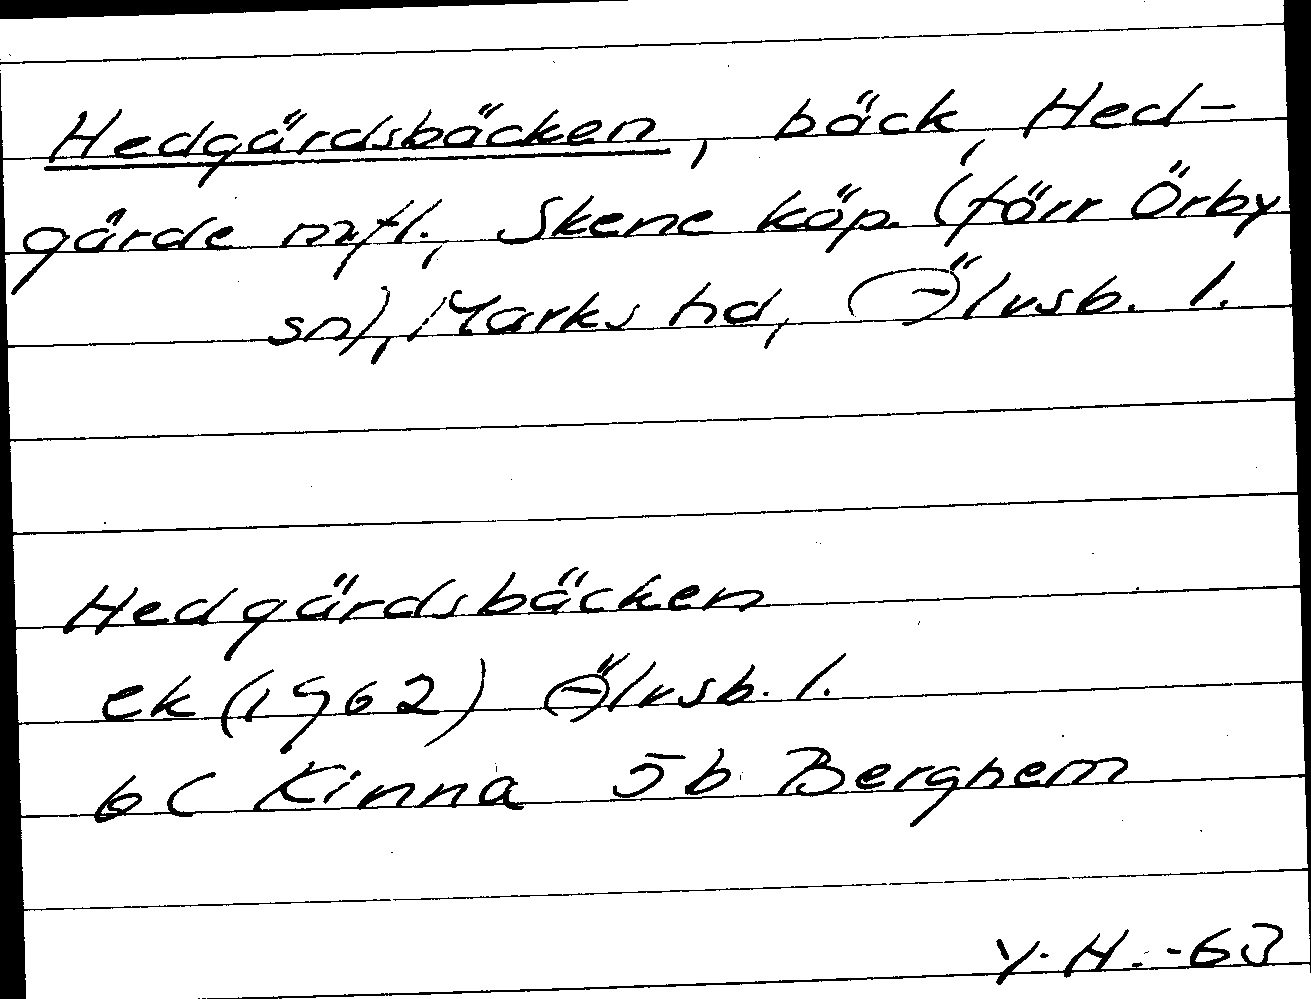 Hedgärdsbäcken, bäck, Hed-
gärde m.fl., Skene köp. (förr Örby
sn), Marks hd, Älvsb. l.
Hedgärdsbäcken
ek (1962) Älvsb. l.
6C Kinna 5b Berghem
Y.H.-63